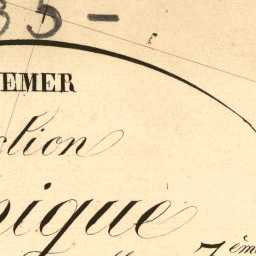 35-
EMER
ction
nique
7ème